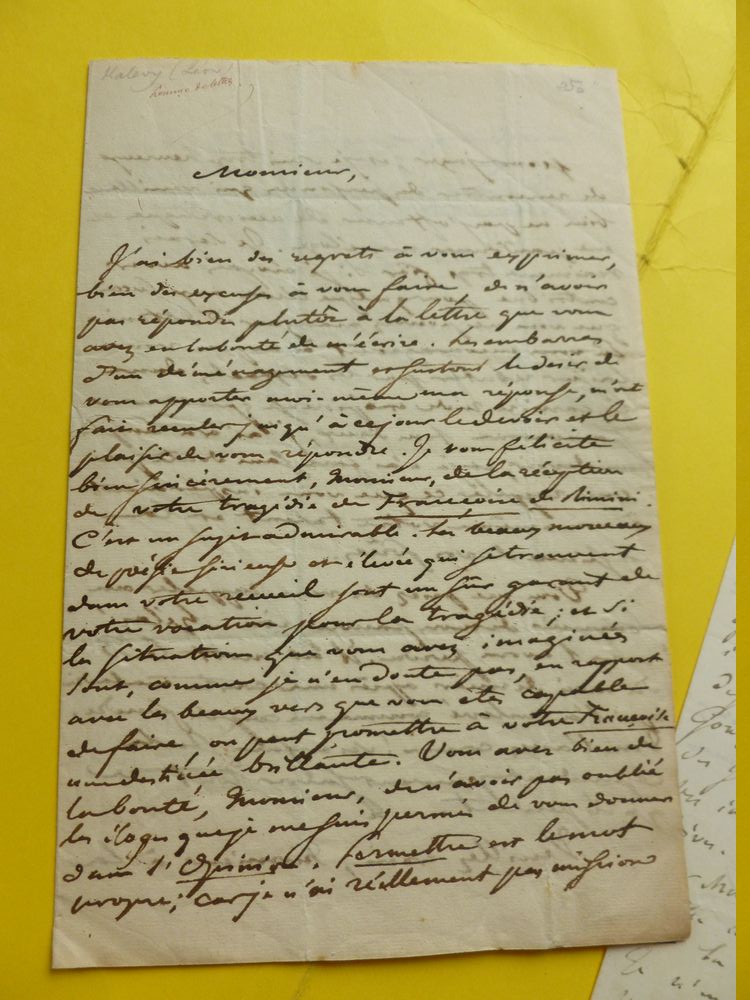 Halevy (Léon)
homme de lettres
Monsieur,
J'ai bien des regrets à vous exprimer,
bien des excuses à vous faire, de n'avoir
pas répondu plutôt à la lettre que vous
avez eu la bonté de m'écrire. Les embarras
d'un déménagement et surtout le désir de
vous apporter moi-même ma réponse, m'ont
fait reculer jusqu'à ce jour le devoir et le
plaisir de vous répondre. Je vous félicite
bien sincèrement, Monsieur, de la réception
de votre tragédie de Françoise de Rimini.
C'est un sujet admirable. Les beaux morceaux
de poésie sérieuse et élevée qui se trouvent
dans votre recueil sont un sûr garant de
votre vocation pour la tragédie; et si
les situations que vous avez imaginées
sont, comme je n'en doute pas, en rapport
avec les beaux vers que vous êtes capable
de faire, on peut promettre à votre Françoise
une destinée brillante. Vous avez bien de
la bonté, Monsieur, de n'avoir pas oublié
les éloges que je me suis permis de vous donner
dans l'Opinion. Permettre est le mot
propre; car je n'ai réellement pas mission